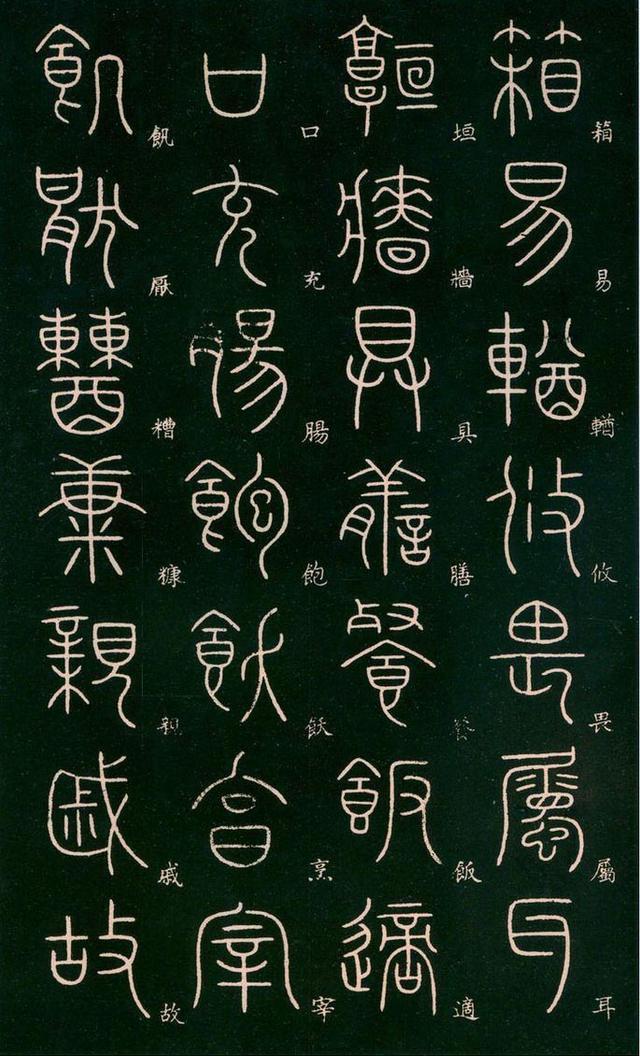 箱易輶攸畏屬耳
垣牆具膳餐飯適
口充腸飽飫烹宰
飢厭糟糠親戚故